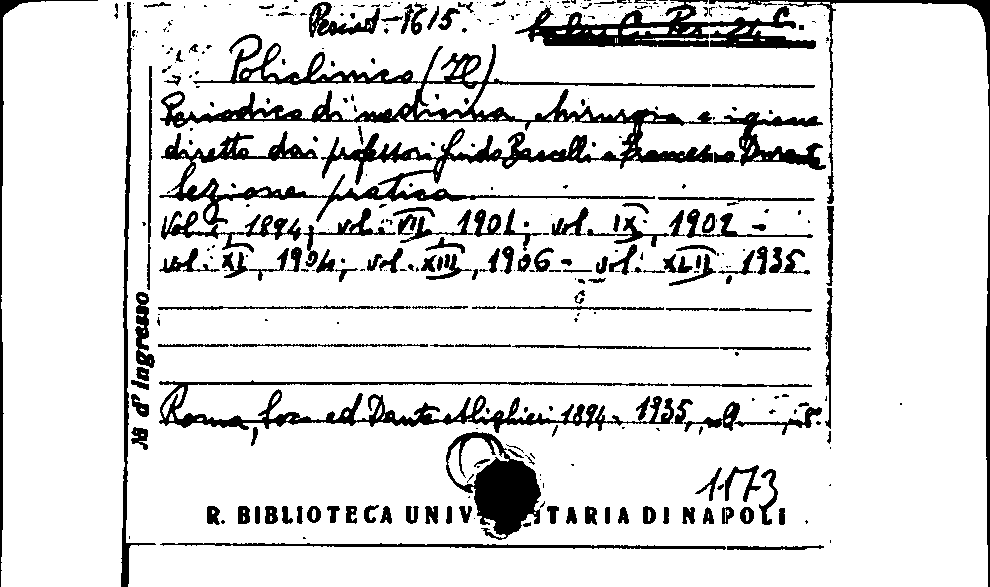 Period. 1615.
Policlinico (Il).
Periodico di medicina, chirurgia e igiene
diretto dai professori Guido Baccelli e Francesco Durante
Sezione pratica
Vol I, 1894; vol. VII, 1901; vol. IX, 1902 -
vol. XI, 1904; vol. XIII, 1906 - vol. XLII, 1935.
N d' Ingresso
Roma, Soc. ed. Dante Alighieri, 1894 - 1935, 8°.
1173
R. BIBLIOTECA UNIV ITARIA DI NAPOLI